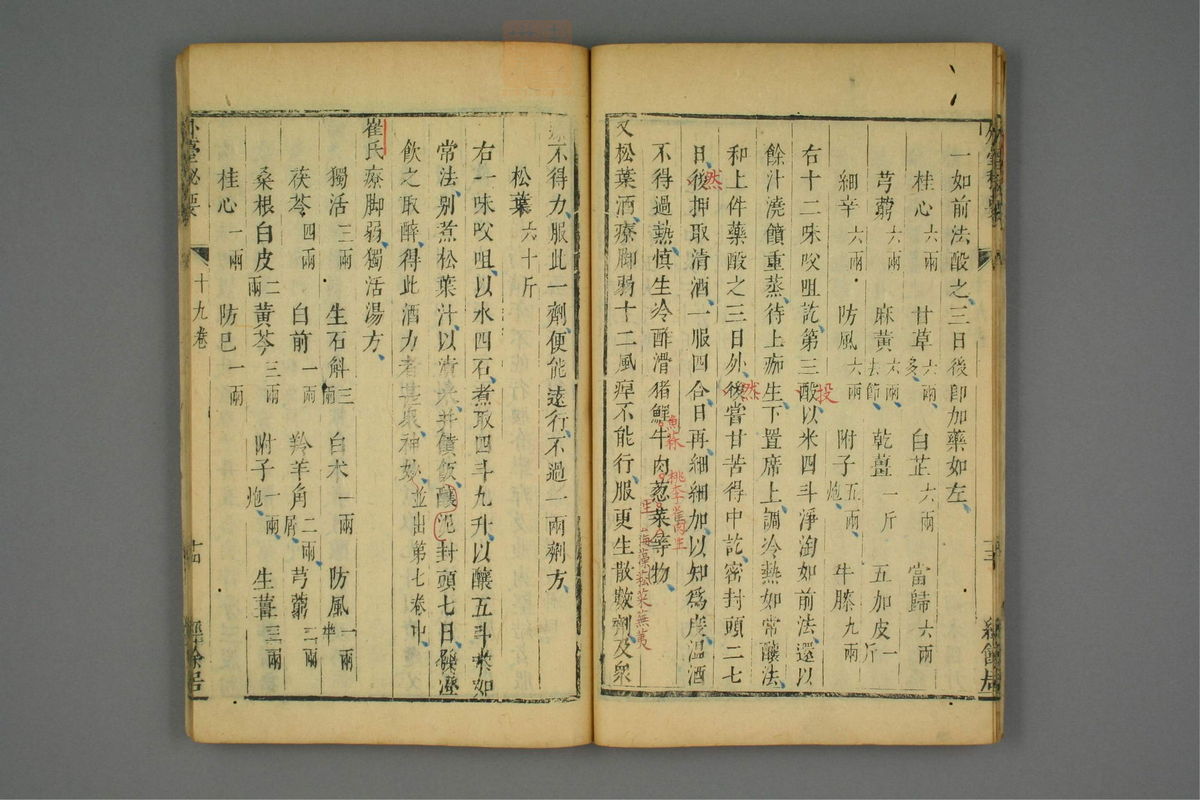 一如前法酘之三日後即加藥如左
桂心六兩 甘草六兩多 白芷六兩 當歸六兩
芎藭六兩 麻黃六兩去節 乾薑一斤 五加皮一斤
細辛六兩 防風六兩 附子五兩炮 牛膝九兩
右十二味㕮咀訖第三酘以米四斗淨淘如前法還以
投
餘汁澆饙重蒸待上痂生下置席上調冷熱如常釀法
和上件藥酘之三日外後當甘苦得中訖密封頭二七
然
日後押取清酒一服四合日再細細加以知為度溫酒
然
不得過熱慎生冷酢滑豬鮮牛肉蔥菜等物
魚蒜
桃李
生
海藻菘菜蕪荑
又松葉酒療脚弱十二風痺不能行服更生散數劑及眾
不得力服此一劑便能遠行不過一兩劑方
松葉六十斤
右一味㕮咀以水四石煮取四斗九升以釀五斗米如
常法別煮松葉汁以漬米并饋飯釀泥封頭七日發澄
飲之取醉得此酒力者甚眾神妙並出第七卷中
崔氏療脚弱獨活湯方
獨活三兩 生石斛三兩 白朮一兩 防風一兩
茯苓四兩 白前一兩 羚羊角二兩屑 芎藭二兩
桑根白皮二兩 黃芩三兩 附子一兩炮 生薑三兩
桂心一兩 防巳一兩
外臺祕要 十九卷 十四 經餘居